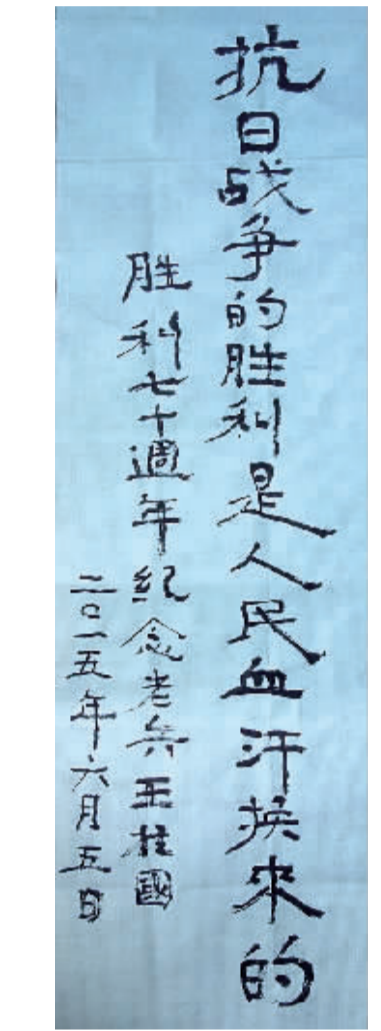 抗日战争的胜利是人民血汗换來的
胜利七十週年纪念老兵王柱國
二〇一五年六月五日